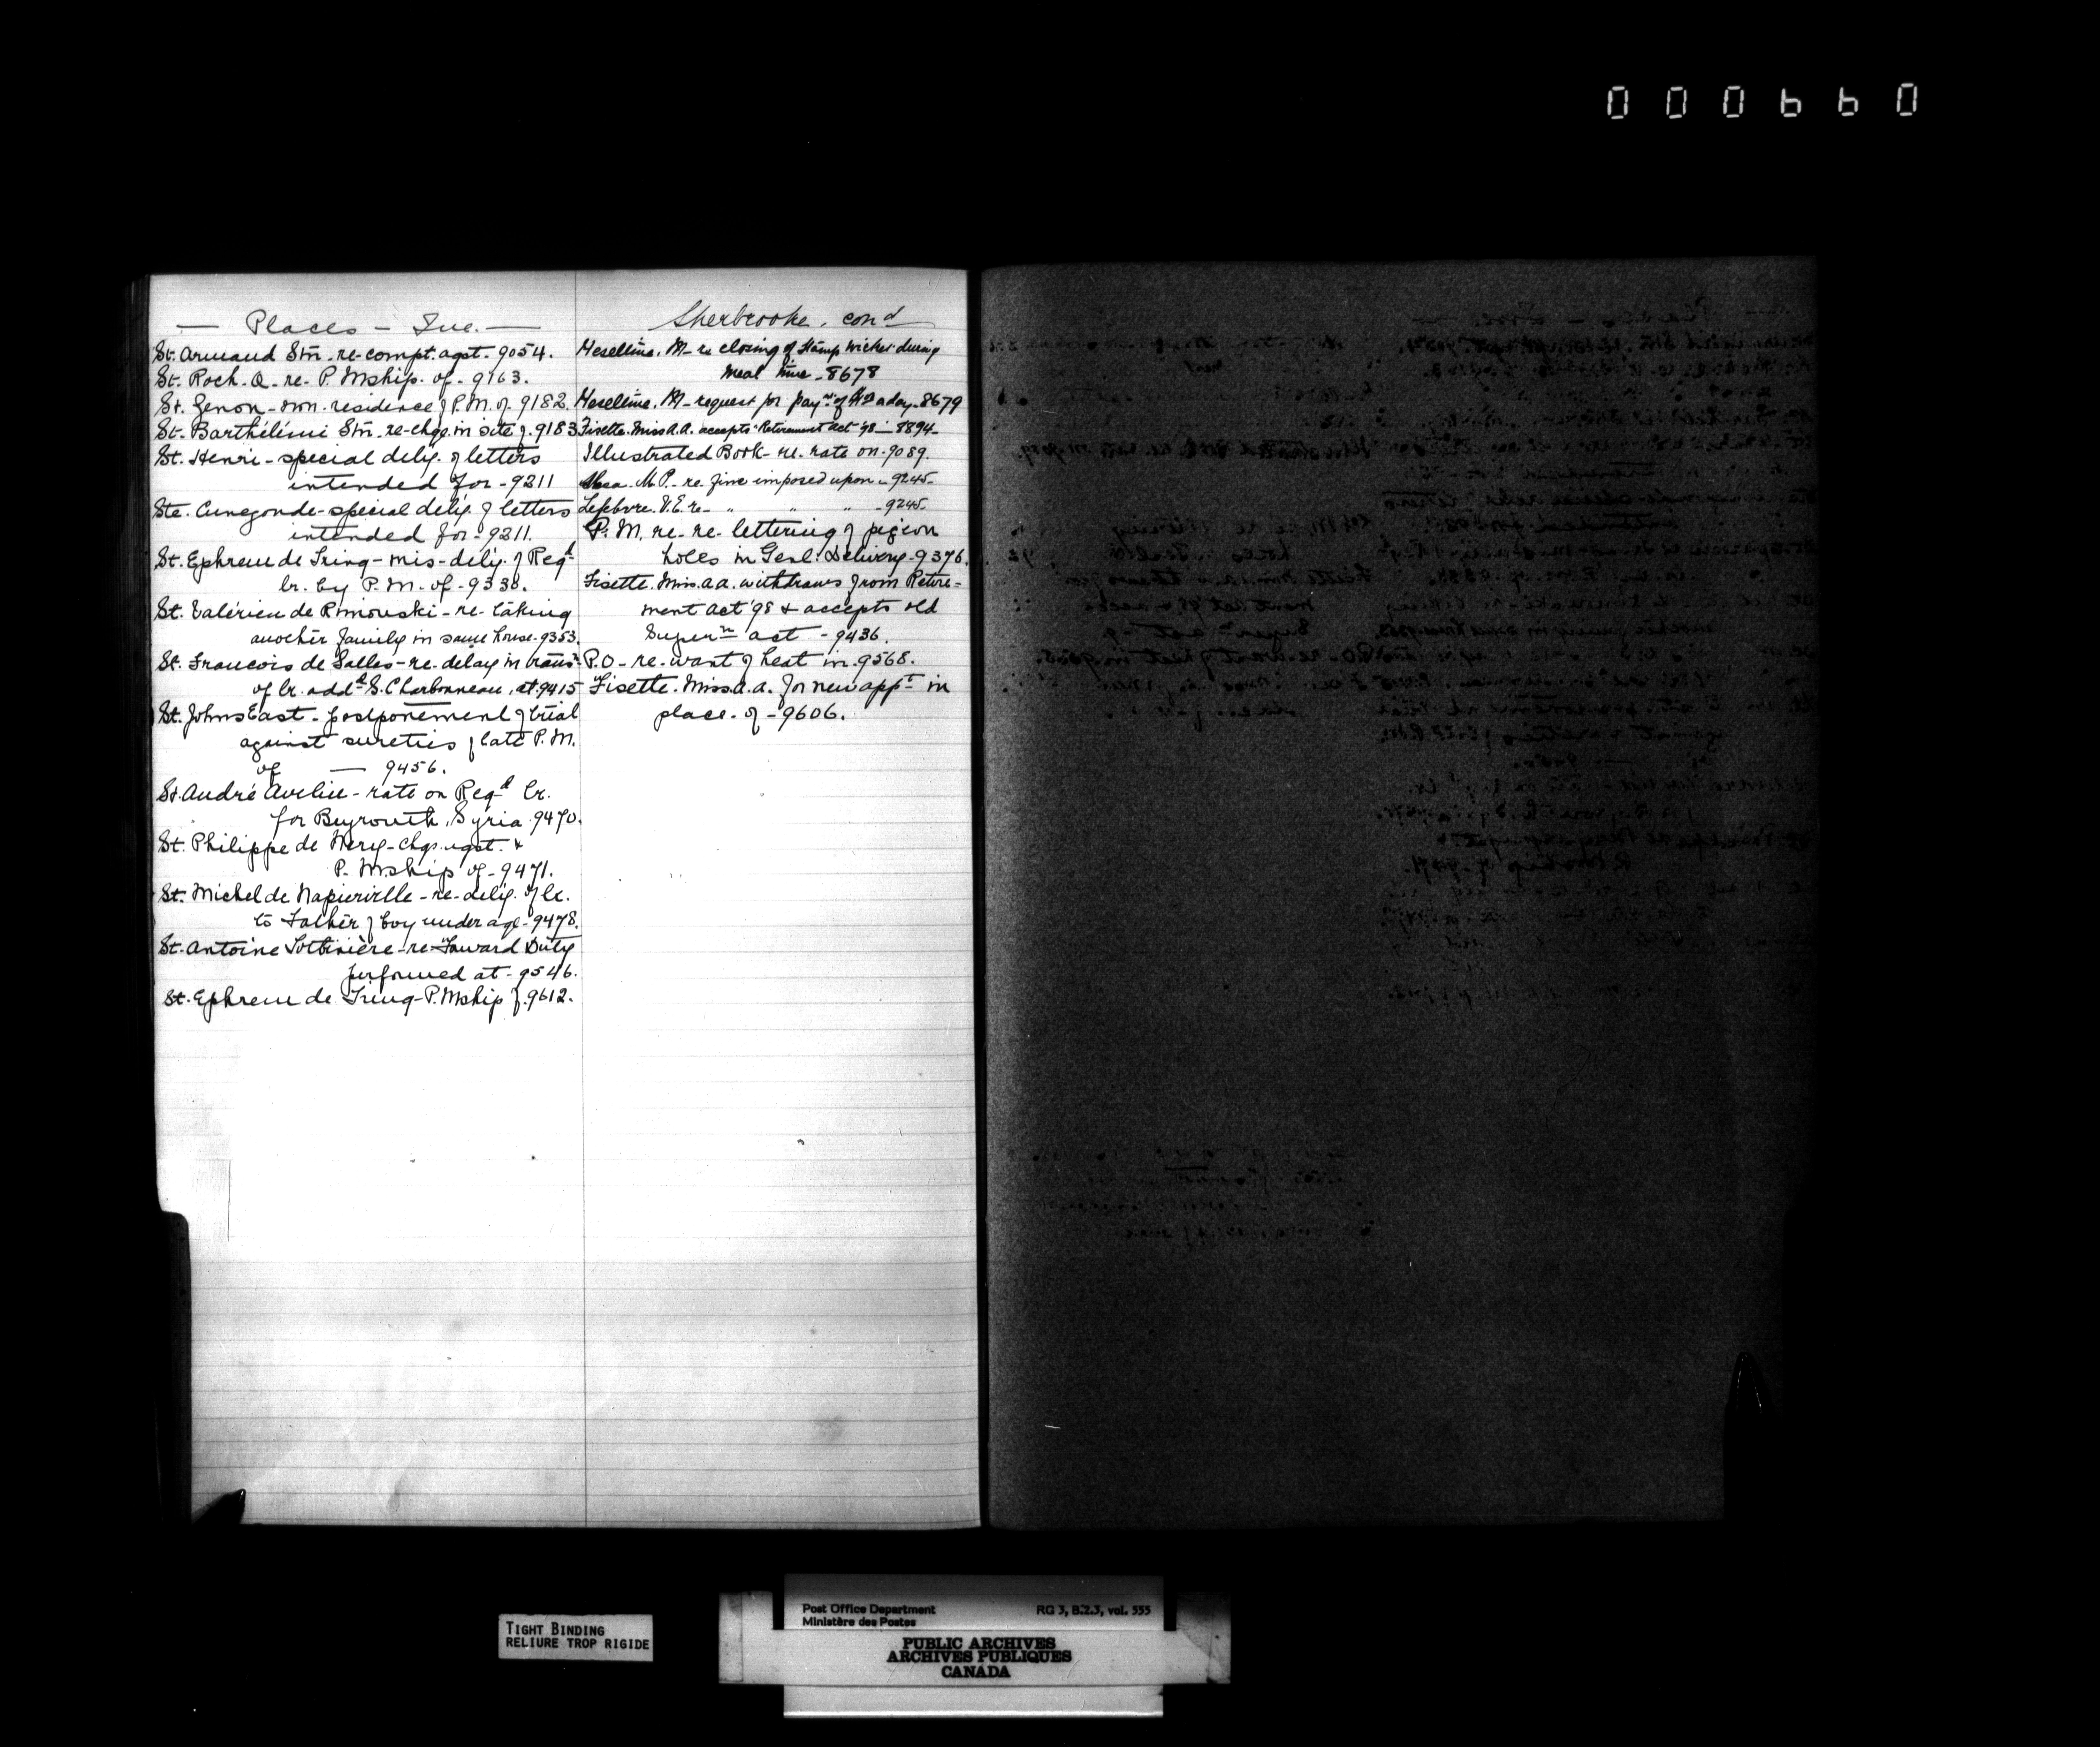 000660
— Places — Que. —
St. Armand Stn. - re - compt. agst. - 9054.
St. Roch. Q. - re - P. Mship. of - 9163.
St. Zenon - non - residence of P.M. of. 9182.
St. Barthélémi Stn. - re - chge. in site of. 9183
St. Henri - special delij. of letters
intended for - 9211
Ste. Cunegonde - special delij. of letters
intended for - 9211.
St. Ephrem de Tring - mis - delij. of Regd
lr. by P. M. of - 9330.
St. Valérien de Rimouski - re - taking
another family in same house - 9353.
St. Francois de Salles - re - delay in trans.
of lr. addd S. Charbonneau, at 9415
St. Johns East - postponement of trial
against sureties of late P.M.
of — 9456.
St. André Avelin - rate on Regd lr.
for Beyrouth, Syria. 9470.
St. Philippe de Nery - chgs. agst. &
P. Mship of - 9471.
St. Michel de Napierville - re - delij. of lr.
to Father of boy under age - 9478.
St. Antoine Lotbinière - re - Forward Duty
performed at - 9546.
St. Ephrem de Tring - P. Mship of. 9612.
Sherbrooke. cond
Heseltine. M - re closing of Stamp Wicket during
meal time - 8678
Heseltine. M - request for paynt of a day - 8679
Fisette. Miss A.A. accepts "Retirement Act '98 — 8894 -
Illustrated Book - re. rate on - 9089.
M.P. - re. fine imposed upon - 9245 -
Lefebvre. V.E. re - " " " - 9245 -
P. M. re - re - lettering of pigeon
holes in Genl. Delivery - 9376.
Fisette. Miss. A.A. withdraws from Retire-
ment Act '98 & accepts old
Supern Act - 9436.
P.O - re - want of heat in. 9568.
Fisette. Miss. A.A. for new appt in
place - of - 9606.
TIGHT BINDING
RELIURE TROP RIGIDE
Post Office Department RG 3, B.2.3, vol. 555
Ministère des Postes
PUBLIC ARCHIVES
ARCHIVES PUBLIQUES
CANADA